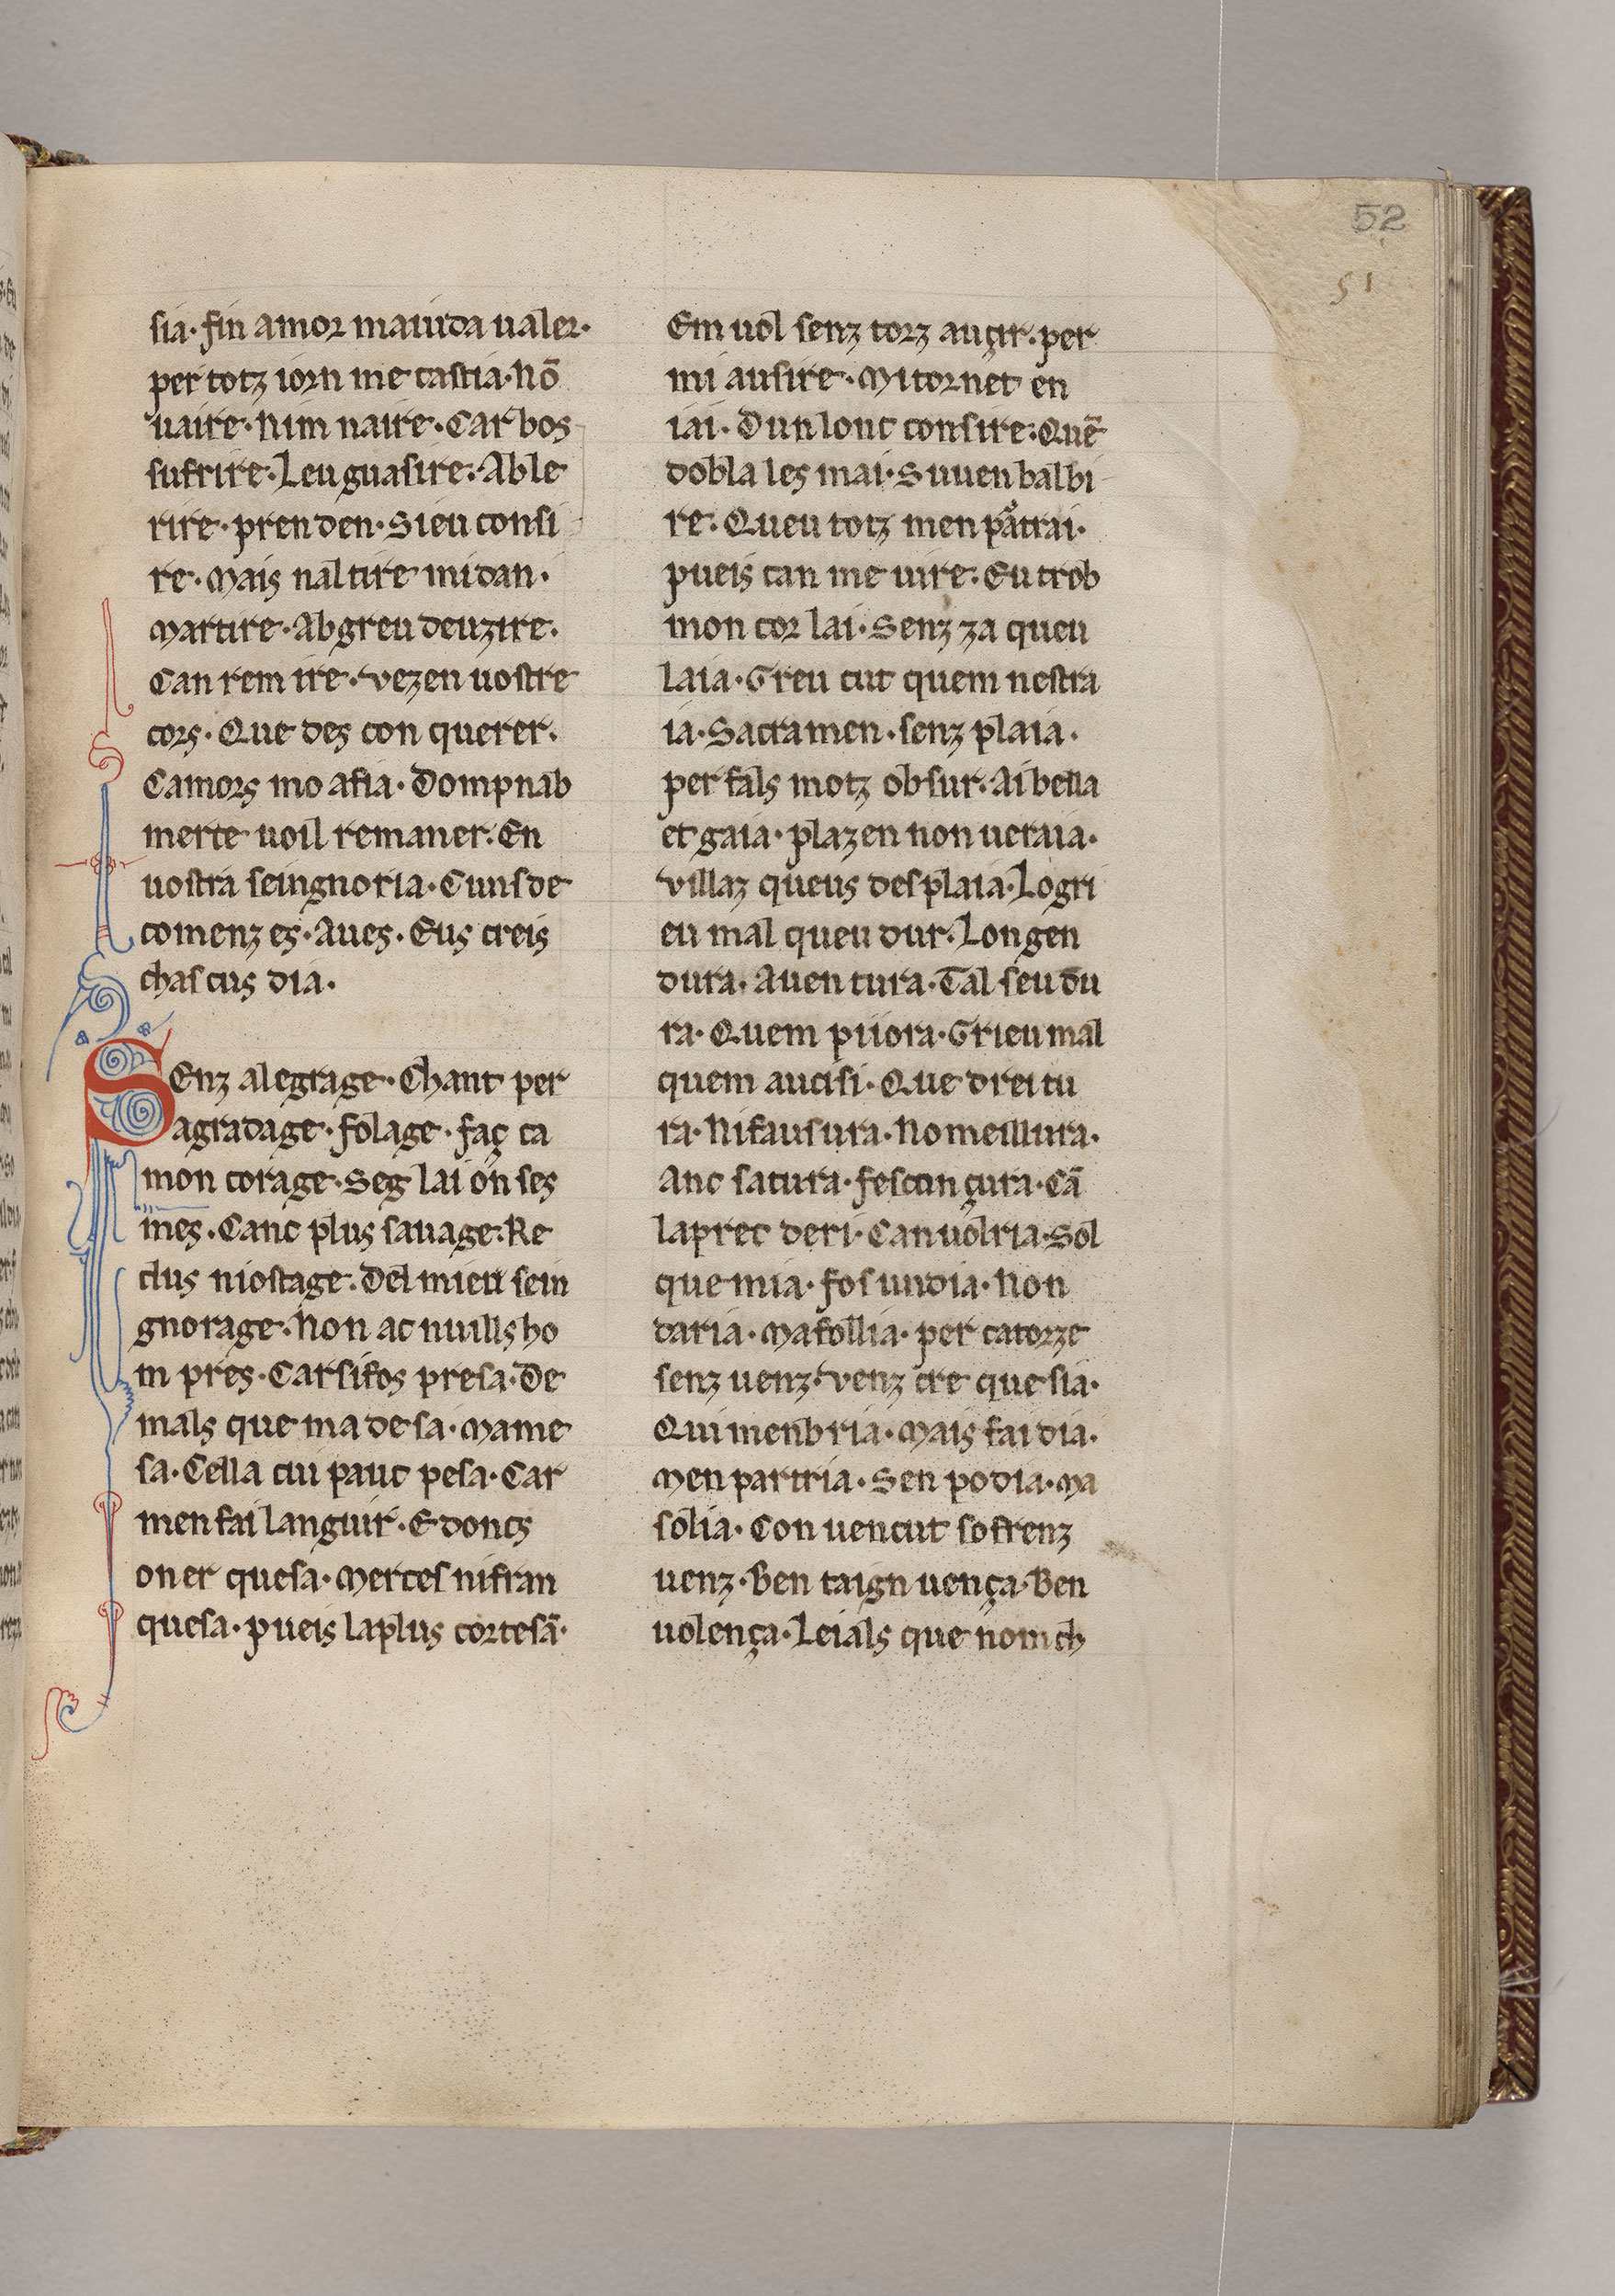 52
51
sia· fin amor maiuda ualer·
per totz iorn me castia· Nō
uaire· Nim naire· Car bos
sufrire· Leu guasire· Ab le
rire· pren den· Sieu consi
re· Mais nal tire mi dan·
Martire· Ab greu deuzire·
Can rem ire· vezen uostre
cors· Que des con querer·
Camors mo afia· Dompnab
merce uoil remaner· En
uostra seingnoria· Cuns de
comenz es· Aues· Eus creis
chascus dia·
Senz alegrage· Chant per
agradage· folage· faç ca
mon corage· Seg lai on ses
mes· Canc plus sauage· Re
clus ni ostage· Del mieu sein
gnorage· Non ac nuills ho
m pres· Car si fos presa· De
mals que ma de sa· Mame
sa· Cella cui pauc pesa· Car
men fai languir· E doncs
on er quesa· Merces ni fran
quesa· pueis la plus cortesā·
Em uol senz torz auçir· per
mi ausire· Mi tornet en
iai· Dun lonc consire· Quē
dobla les mai· Suuen balbi
re· Queu totz men patrai·
pueis can me uire· Eu trob
mon cor lai· Senz za queu
laia· Greu cut quem nestra
ia· Sacramen· senz plaia·
per fals motz obsur· Ai bella
et gaia· plazen non ueraia·
villaz queus desplaia· Lo gri
eu mal queu dur· Lon gen
dura· Auen tura· Tal seu du
ra· Quem piiora· Grieu mal
quem aucisi· Que dreitu
ra· Ni fausura· No meillura·
Anc satura· fescun çura· Cā
la prec deri· Can uolria· Sol
que mia· fos un dia· Non
daria· Ma follia· per catorze
senz uenz· venz cre que sia·
Qui menbria· Mais fai dia·
Men partria· Sen podia· Ma
solia· Con uencut sofrenz
uenz· Ben taign uença· Ben
uolença· Leials que nom ch